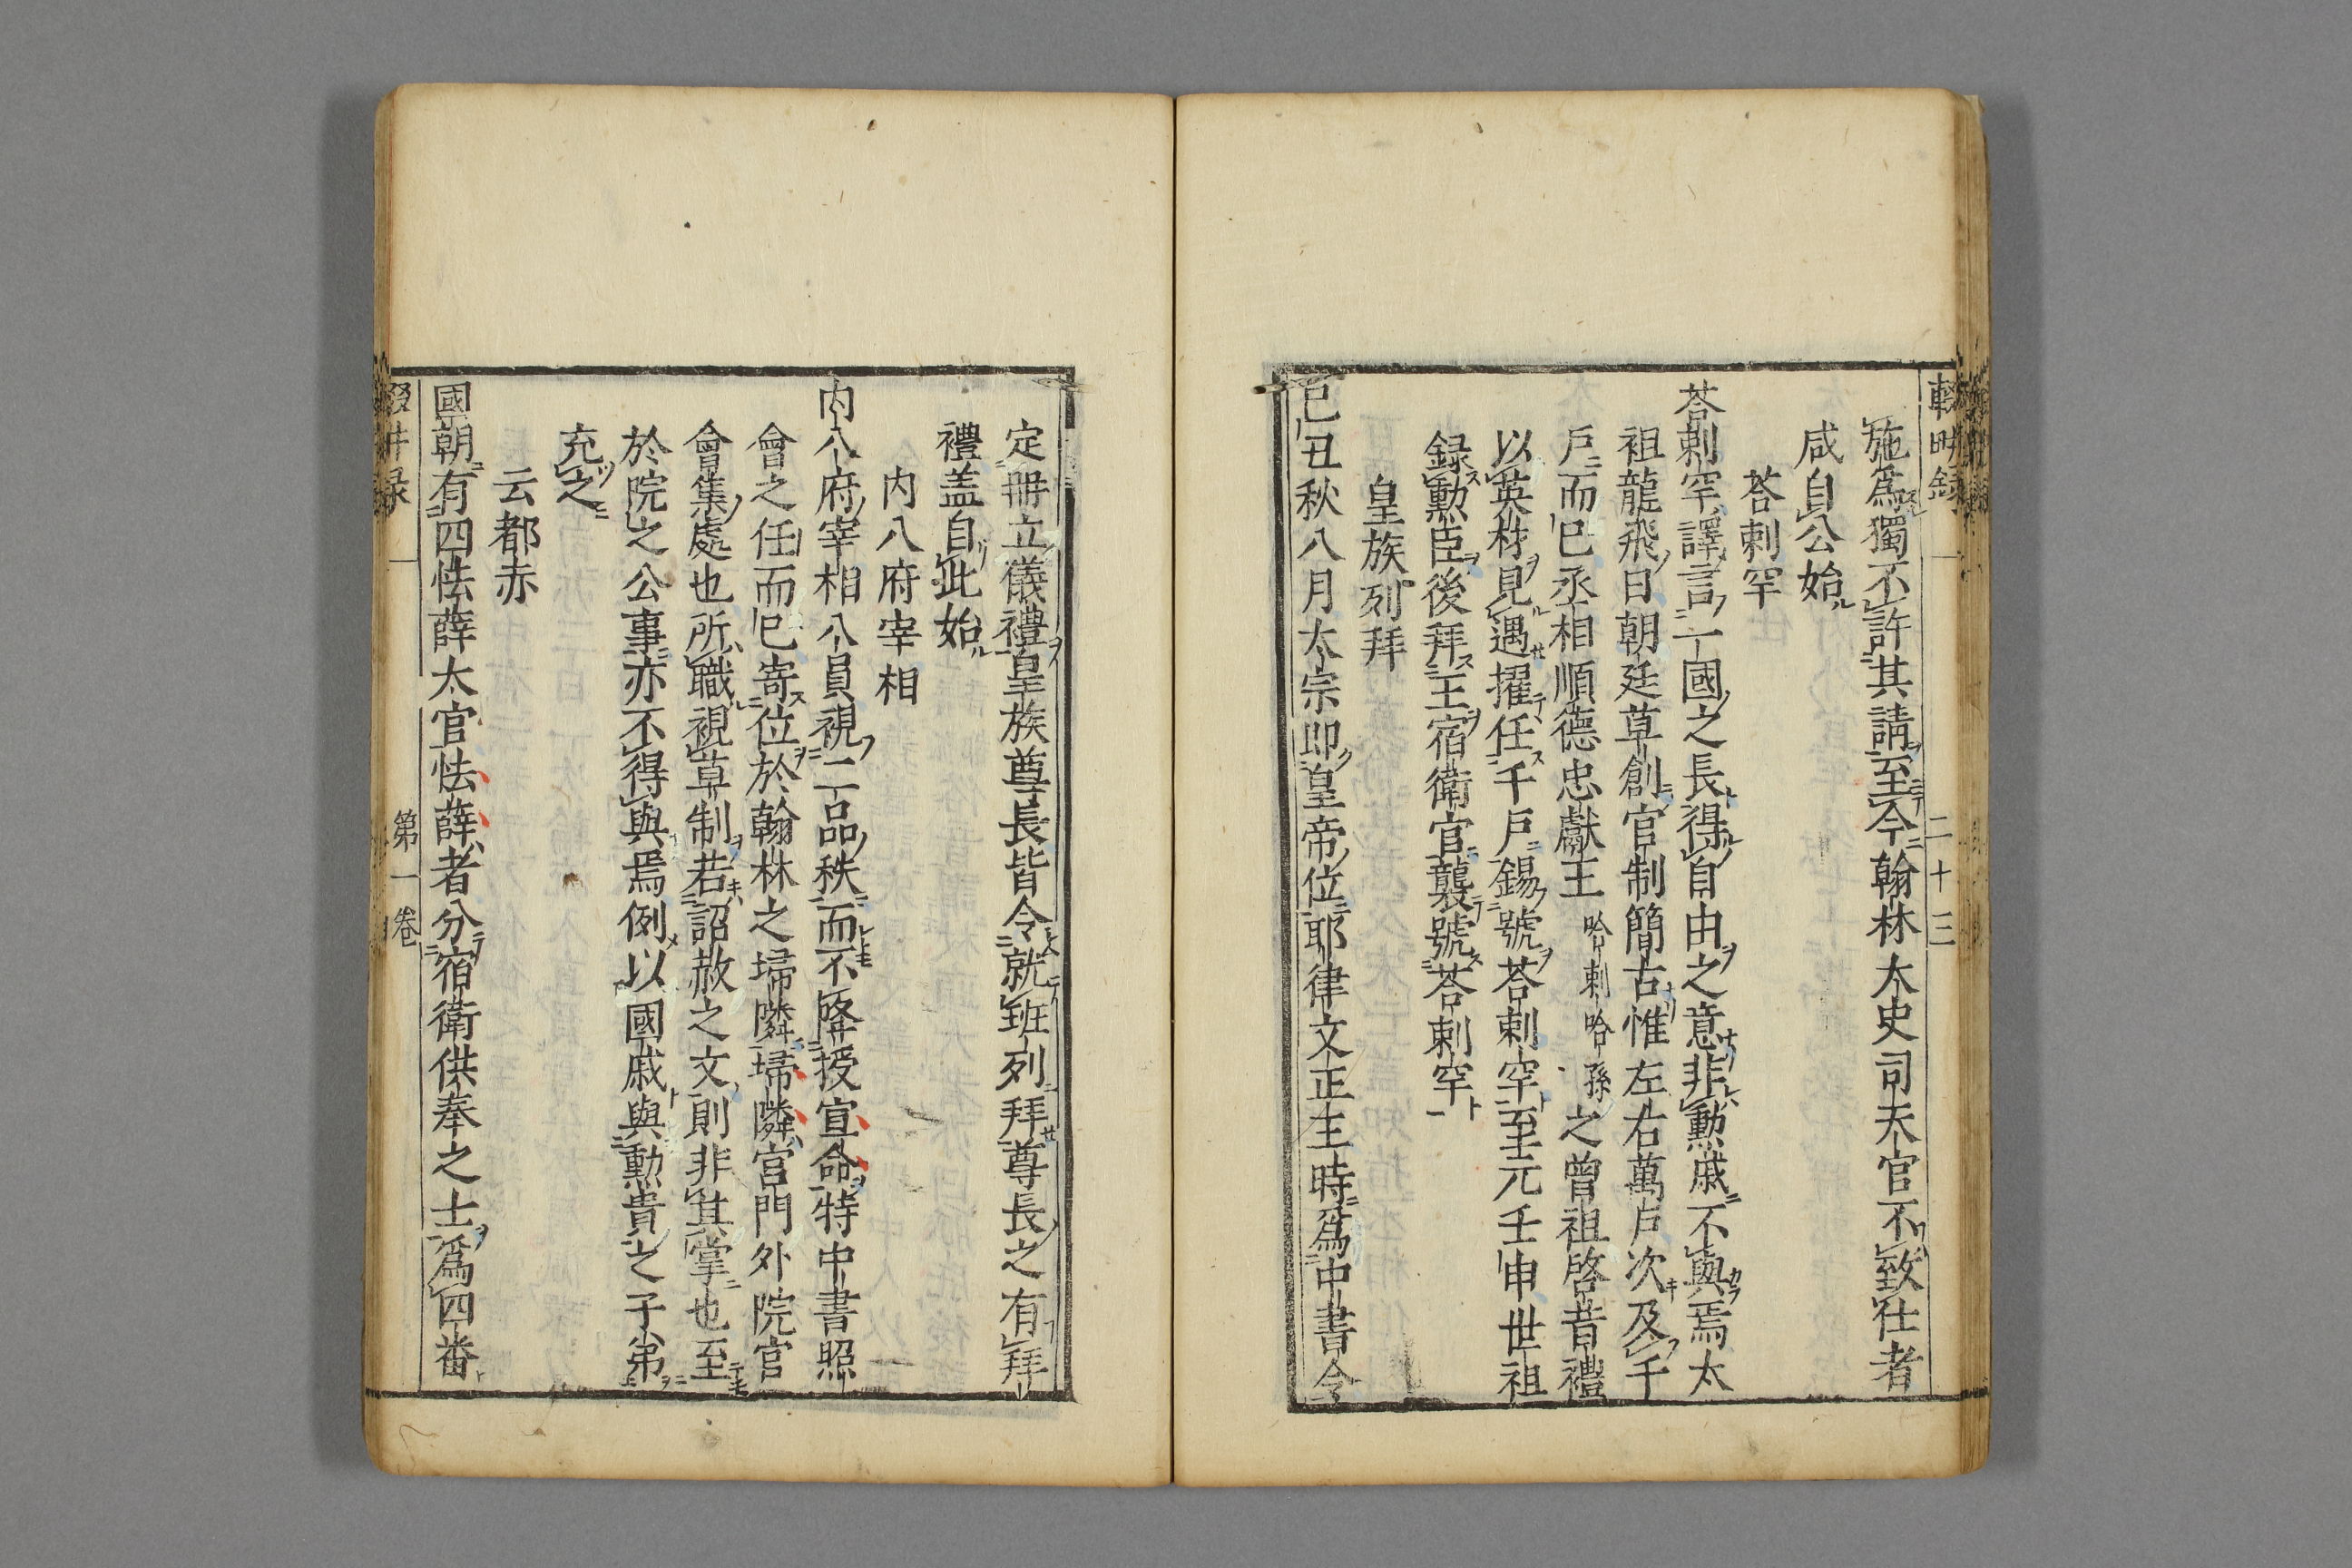 輟畊録 一 二十三
施爲獨不許其請至今翰林太史司天官不致仕者
咸自公始
荅剌罕
荅剌罕譯言一國之長得自由之意非勲戚不與焉太
祖龍飛日朝廷草創官制簡古惟左右萬戸次及千
戸而已丞相順德忠獻王哈剌哈孫之曾祖啓昔禮
以英材見遇擢任千戸錫號荅剌罕至元壬申世祖
録勲臣後拜王宿衛官襲號荅剌罕
皇族列拜
已丑秋八月太宗即皇帝位耶律文正王時爲中書令
定冊立儀禮皇族尊長皆令就班列拜尊長之有拜
禮盖自此始
内八府宰相
内八府宰相八員視二品秩而不降授宣命特中書照
會之任而已寄位於翰林之埽隣埽隣宫門外院官
會集處也所職視草制若詔赦之文則非其掌也至
於院之公事亦不得與焉例以國戚與勲貴之子弟
充之
云都赤
國朝有四怯薛太官怯薛者分宿衛供奉之士爲四番
第一卷